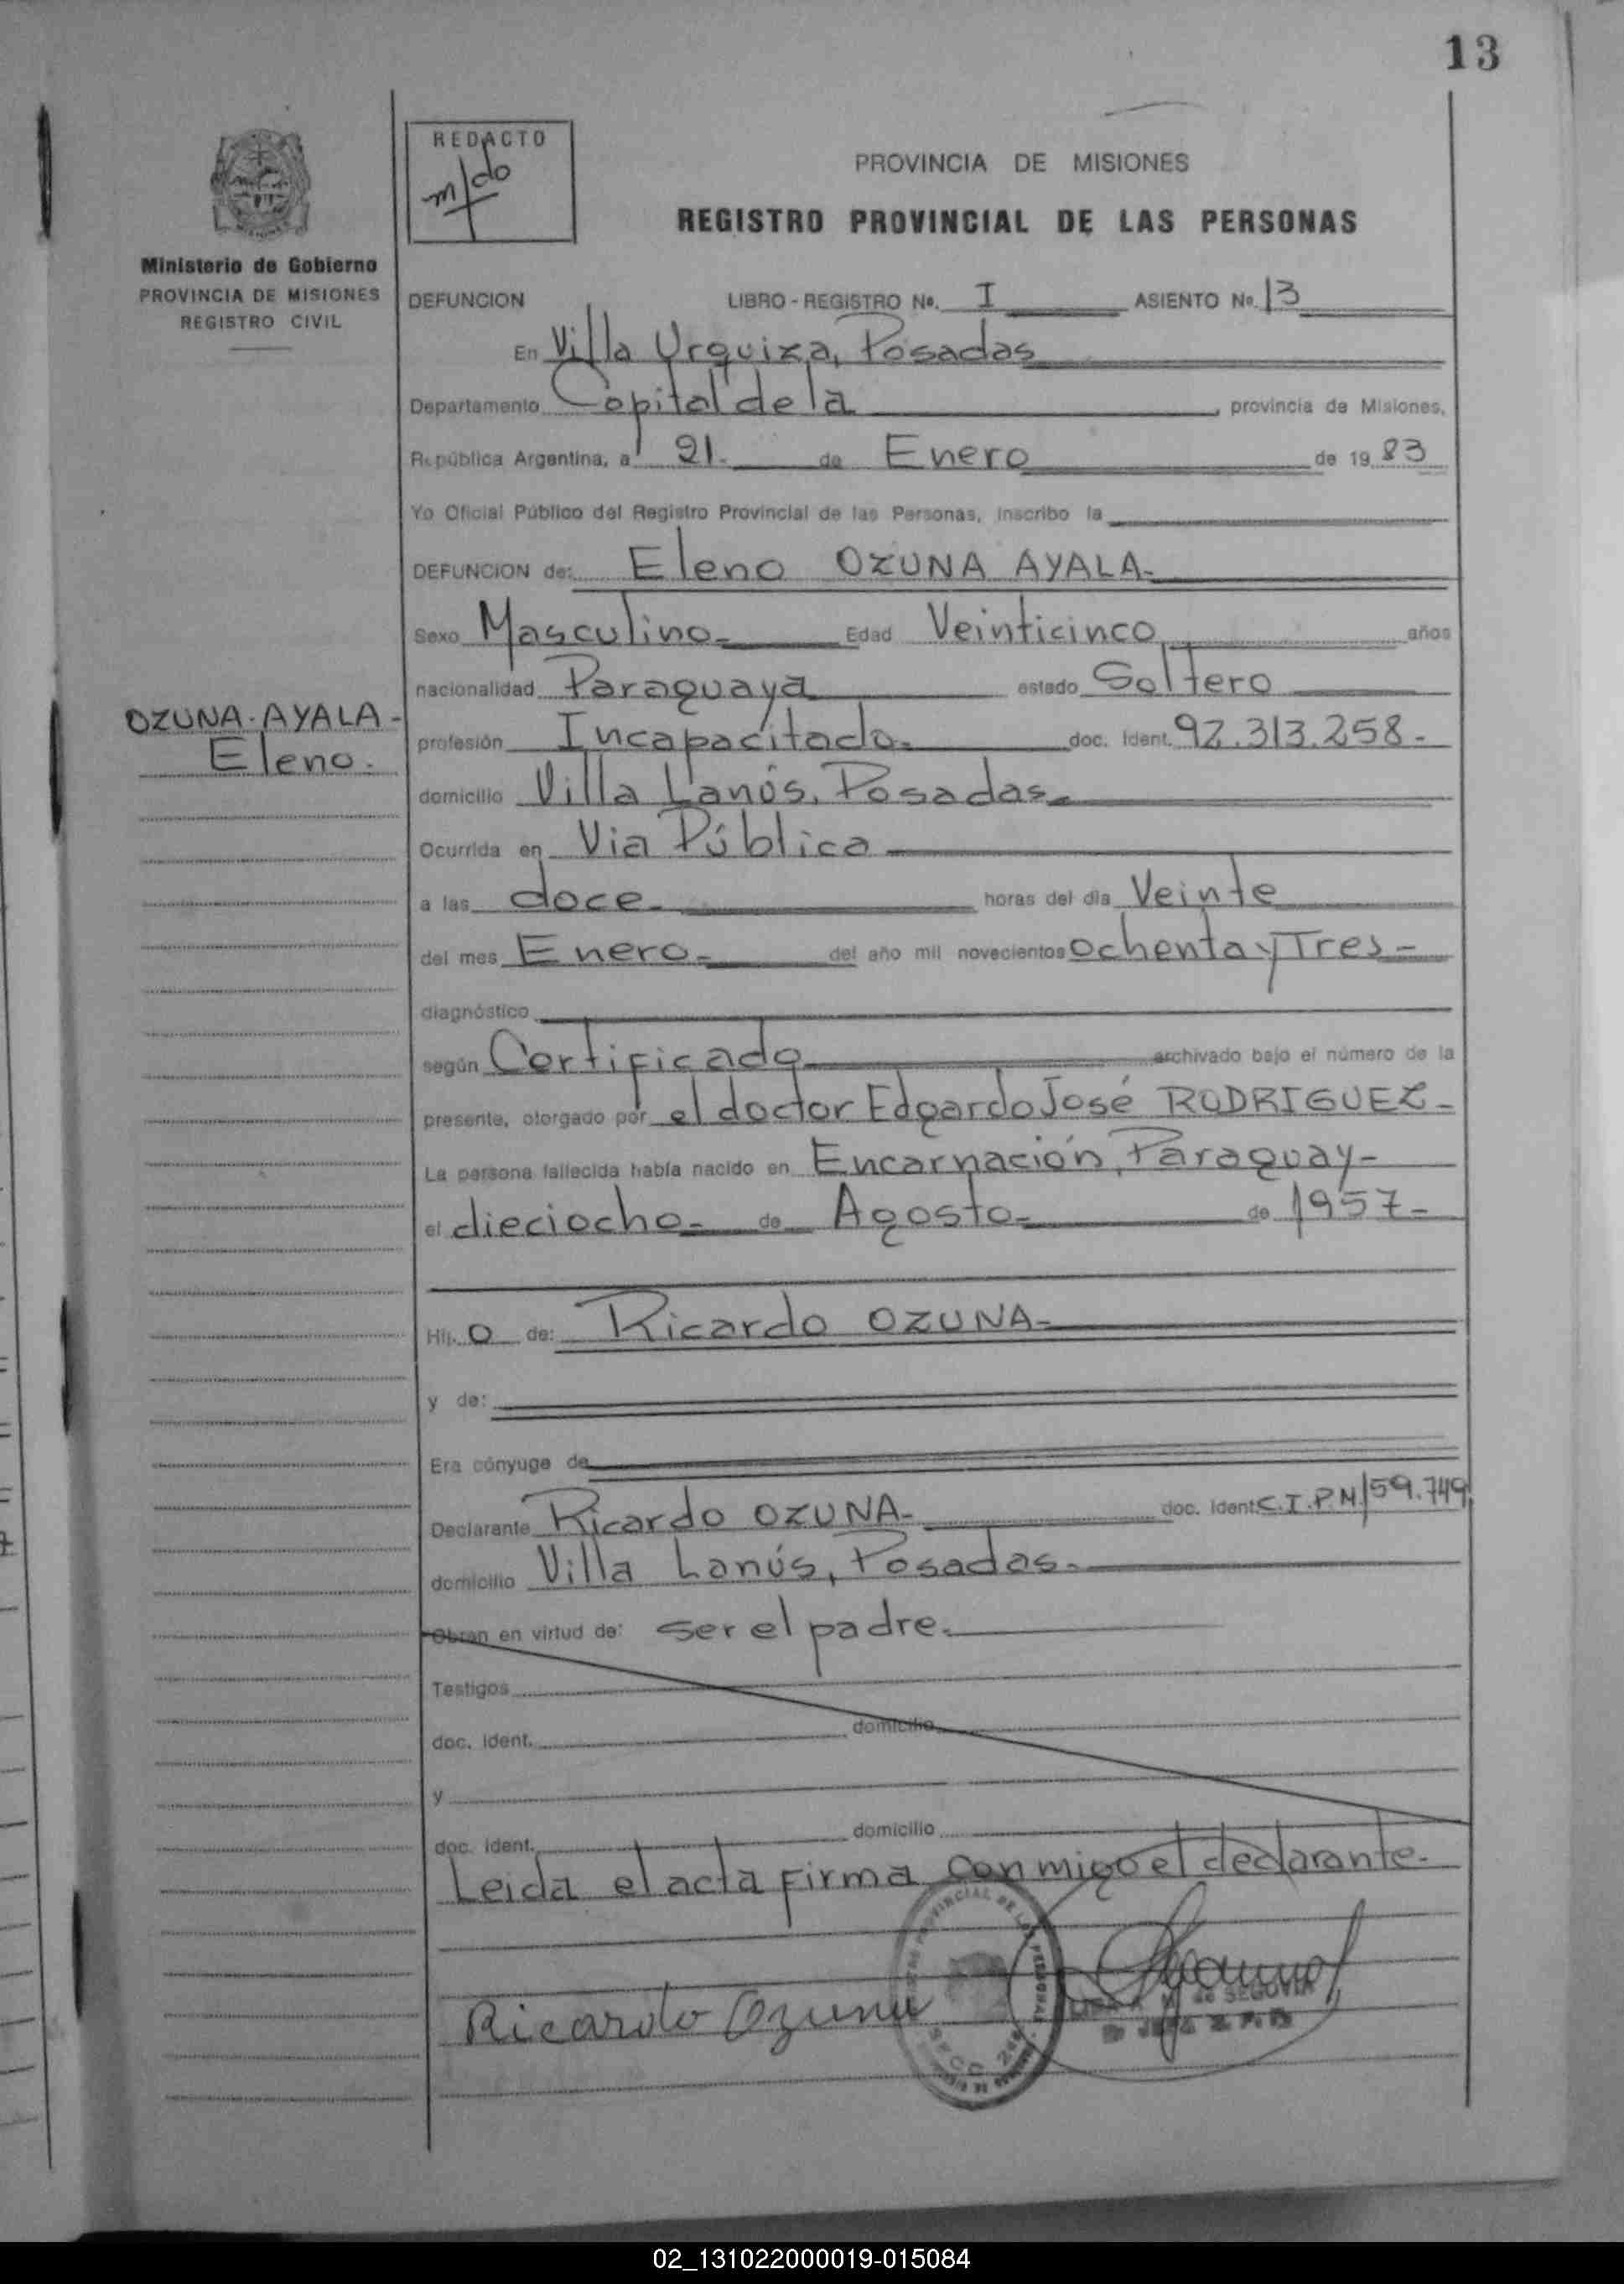 13
REDACTO
m/do
PROVINCIA DE MISIONES
REGISTRO PROVINCIAL DE LAS PERSONAS
Ministerio de Gobierno
PROVINCIA DE MISIONES
REGISTRO CIVIL
DEFUNCION LIBRO - REGISTRO No. I ASIENTO No. 13
En Villa Urquiza, Posadas
Departamento Capital de la , provincia de Misiones,
República Argentina, a 21. de Enero de 19 83
Yo Oficial Público del Registro Provincial de las Personas, inscribo la
DEFUNCION de: Eleno OZUNA AYALA-
Sexo Masculino- Edad Veinticinco años
nacionalidad Paraguaya estado Soltero
OZUNA-AYALA-
Eleno.
profesión Incapacitado- doc. ident. 92.313.258-
domicilio Villa Lanús, Posadas-
Ocurrida en Via Pública
a las doce- horas del día Veinte
del mes Enero- del año mil novecientos ochenta y Tres-
diagnóstico
según Certificado archivado bajo el número de la
presente, otorgado por el doctor Edgardo José RODRIGUEZ-
La persona fallecida había nacido en Encarnación, Paraguay-
el dieciocho- de Agosto- de 1957-
Hij. o de: Ricardo OZUNA-
y de:
Era cónyuge de
Declarante Ricardo OZUNA- doc. ident. C.I.P.M 159.749
domicilio Villa Lanús, Posadas-
Obran en virtud de: ser el padre.
Testigos
doc. ident. domicilio
y
doc. ident. domicilio
Leida el acta firma conmigo el declarante-
Ricardo Ozuna
de SEGOVIA
02_131022000019-015084